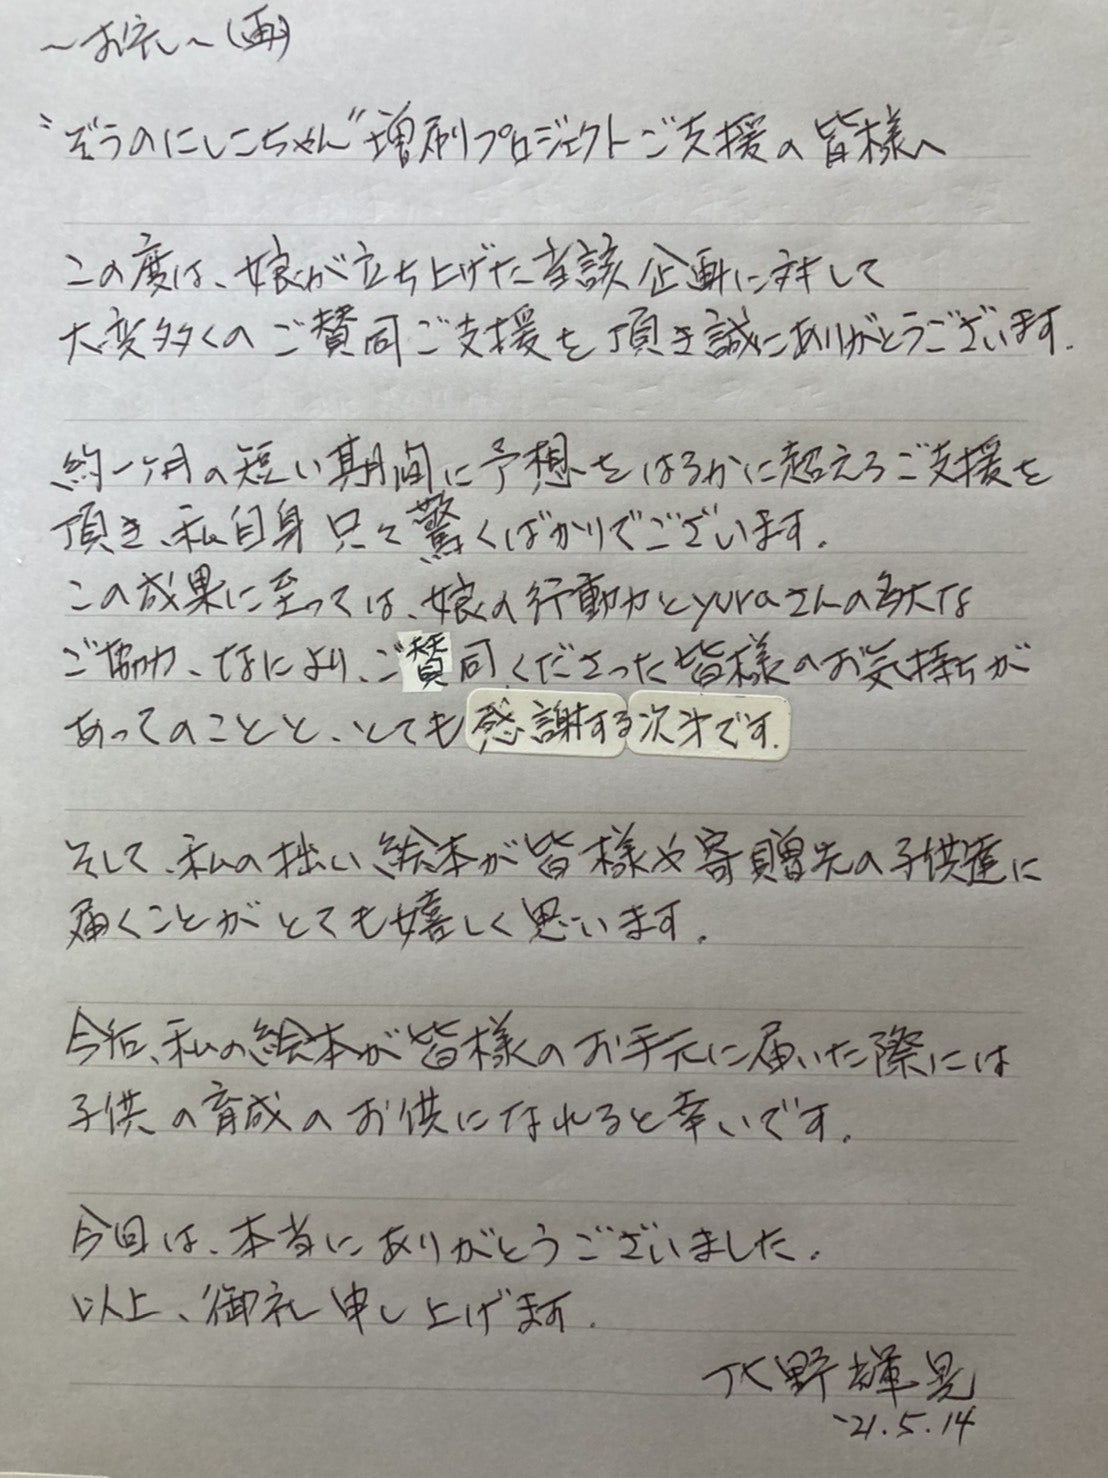 ~お礼~(再)
"ぞうのにしこちゃん"増刷プロジェクトご支援の皆様へ
この度は、娘が立ち上げた当該企画に対して
大変多くのご賛同ご支援を頂き誠にありがとうございます.
約一ヶ月の短い期間に予想をはるかに超えるご支援を
頂き、私自身只々驚くばかりでございます.
この成果に至っては、娘の行動力とyuraさんの多大な
ご協力、なにより、ご賛同くださった皆様のお気持ちが
あってのことと、とても感謝する次才です.
そして、私の拙い絵本が皆様や寄贈先の子供達に
届くことがとても嬉しく思います.
今后、私の絵本が皆様のお手元に届いた際には
子供の育成のお供になれると幸いです.
今回は、本当にありがとうございました.
以上、御礼申し上げます.
水野輝晃
'21.5.14